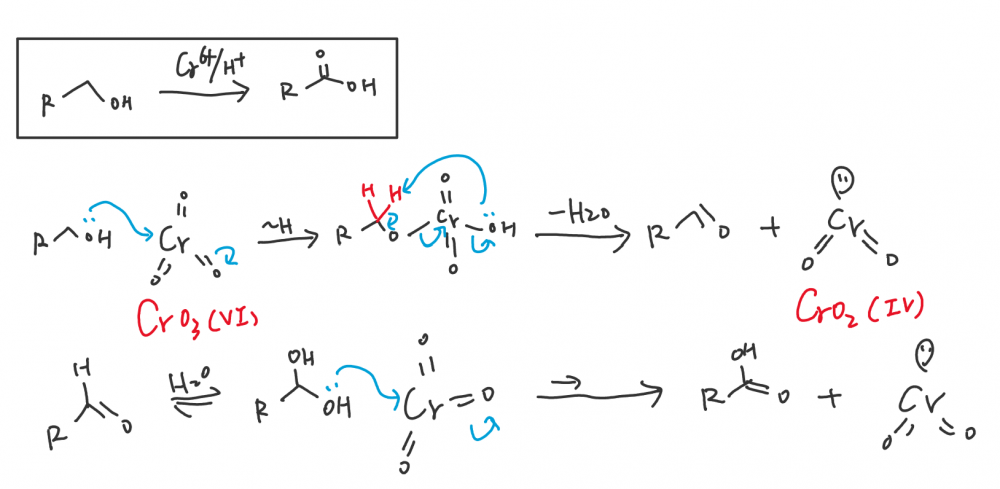 Cr6+/H+
R OH R O OH
R OH O Cr O O ~H R H H O O Cr OH O -H2O R O + Cr O O
CrO3 (VI) CrO2 (IV)
H R O H2O R OH OH O Cr O O R OH O + Cr O O